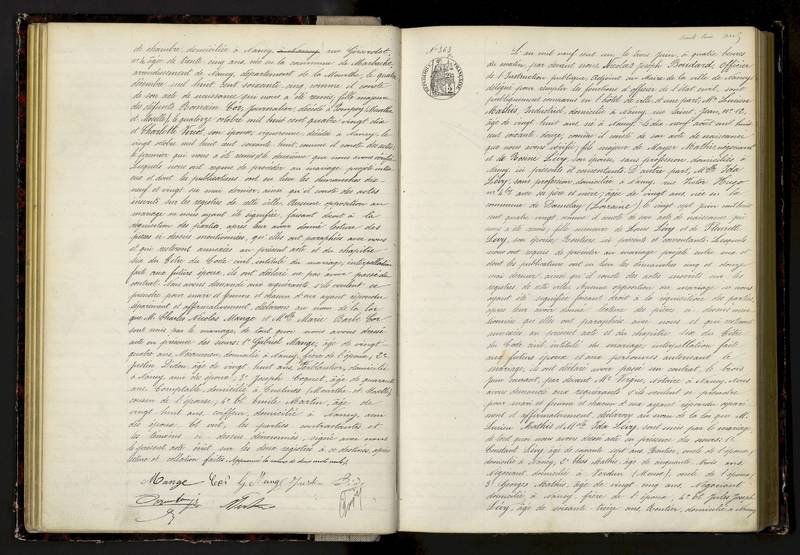 de chambre, domiciliée à Nancy, rue Girardet,
n° 4, âgée de trente cinq ans, née en la commune de Marbache,
arrondissement de Nancy, département de la Meurthe, le quatre
décembre mil huit cent soixante cinq, comme il conste
de son acte de naissance qui nous a été remis, fille majeure
des défunts Romain Cor, journalier décédé à Pompey (Meurthe
et Moselle), le quatorze octobre mil huit cent quatre vingt dix
et Charlotte son épouse, vigneronne, décédée à Nancy, le
vingt octobre mil huit cent soixante huit, comme il conste des actes
le premier qui nous a été remis & le deuxième que nous avons vérifié.
Lesquels nous ont requis de procéder au mariage projeté entre
eux et dont les publications ont eu lieu les dimanches dix
neuf et vingt six mai dernier, ainsi qu'il conste des actes
inscrits sur les registres de cette ville. Aucune opposition au
mariage ne nous ayant été signifiée, faisant droit à la
réquisition des parties, après leur avoir donné lecture des
pièces ci-dessus mentionnées, qu'elles ont paraphées avec nous
et qui resteront annexées au présent acte et du chapitre
six du Titre du Code civil, intitulé du mariage, interpellation
faite aux futurs époux, ils ont déclaré ne pas avoir passé de
contrat. Nous avons demandé aux requérants s'ils veulent se
prendre pour mari et femme et chacun d'eux ayant répondu
séparément et affirmativement, déclarons au nom de la loi
que M. Charles Nicolas Mange et Mlle Marie Barbe Cor
sont unis par le mariage, de tout quoi nous avons dressé
acte en présence des sieurs: 1° Gabriel Mange, âgé de vingt-
quatre ans, Mécanicien, domicilié à Nancy, frère de l'époux, 2°
Justin Didon, âgé de vingt huit ans, Ferblantier, domicilié
à Nancy, ami de l'époux, 3° Joseph Coquet, âgé de quarante
ans, Comptable, domicilié à Custines (Meurthe et Moselle),
cousin de l'épouse, 4° et Emile Martin, âgé de
vingt huit ans, coiffeur, domicilié à Nancy, ami
de l'époux. Et ont, les parties contractantes et
les témoins ci-dessus dénommés, signé avec nous
le présent acte écrit sur les deux registres à ce destinés, après
lecture et collation faites. Approuvé la rature de deux mots nuls.
Mange Cor G. Mange Justin
N° 363
L'an mil neuf cent un, le trois juin, à quatre heures
du matin, par devant nous Nicolas Joseph Boudard, Officier
de l'Instruction publique, Adjoint au Maire de la ville de Nancy
délégué pour remplir les fonctions d'officier de l'état civil, sont
publiquement comparus en l'hôtel de ville, d'une part, Mr Lucien
Mathis, Industriel, domicilié à Nancy, rue Saint Jean, n° 12,
âgé de vingt huit ans, né à Nancy, le dix neuf août mil huit
cent soixante douze, comme il conste de son acte de naissance
que nous avons vérifié, fils majeur de Mayer Mathis, négociant
et de Reine Lévy, son épouse, sans profession, domiciliés à
Nancy, ici présents et consentants. Et d'autre part, Mlle Ida
Lévy, sans profession, domiciliée à Nancy, rue Victor Hugo
n° 4 bis avec ses père et mère, âgée de vingt ans, née en la
commune de (Lorraine), le vingt sept juin mil huit
cent quatre vingt, comme il conste de son acte de naissance qui
nous a été remis, fille mineure de Louis Lévy et de
Lévy, son épouse, Rentiers, ici présents et consentants. Lesquels
nous ont requis de procéder au mariage projeté entre eux et
dont les publications ont eu lieu les dimanches cinq et douze
mai dernier, ainsi qu'il conste des actes inscrits sur les
registres de cette ville. Aucune opposition au mariage ne nous
ayant été signifiée, faisant droit à la réquisition des parties,
après leur avoir donné lecture des pièces ci-dessus men-
tionnées, que elles ont paraphées avec nous et qui resteront
annexées au présent acte et du chapitre six du Titre
du Code civil, intitulé du mariage, interpellation faite
aux futurs époux et aux personnes autorisant le
mariage, ils ont déclaré avoir passé un contrat, le trois
juin courant, par devant Me Vergne, Notaire à Nancy. Nous
avons demandé aux requérants s'ils veulent se prendre
pour mari et femme et chacun d'eux ayant répondu séparé-
ment et affirmativement, déclarons au nom de la loi que M.
Lucien Mathis et Mlle Ida Lévy sont unis par le mariage,
de tout quoi nous avons dressé acte en présence des sieurs: 1°
Constant Lévy, âgé de soixante sept ans, Rentier, oncle de l'épouse,
domicilié à Nancy, 2° Mathis, âgé de cinquante trois ans,
Négociant, domicilié à Verdun (Meuse), oncle de l'époux,
3° Georges Mathis, âgé de vingt cinq ans, Négociant
domicilié à Nancy, frère de l'époux, 4° et Jules Joseph
Lévy, âgé de soixante treize ans, Rentier, domicilié à Nancy